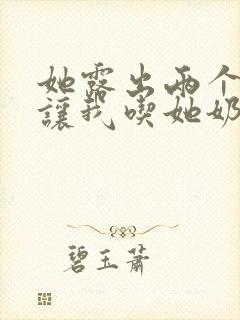 她露出两个
讓我喫她奶
碧玉萧